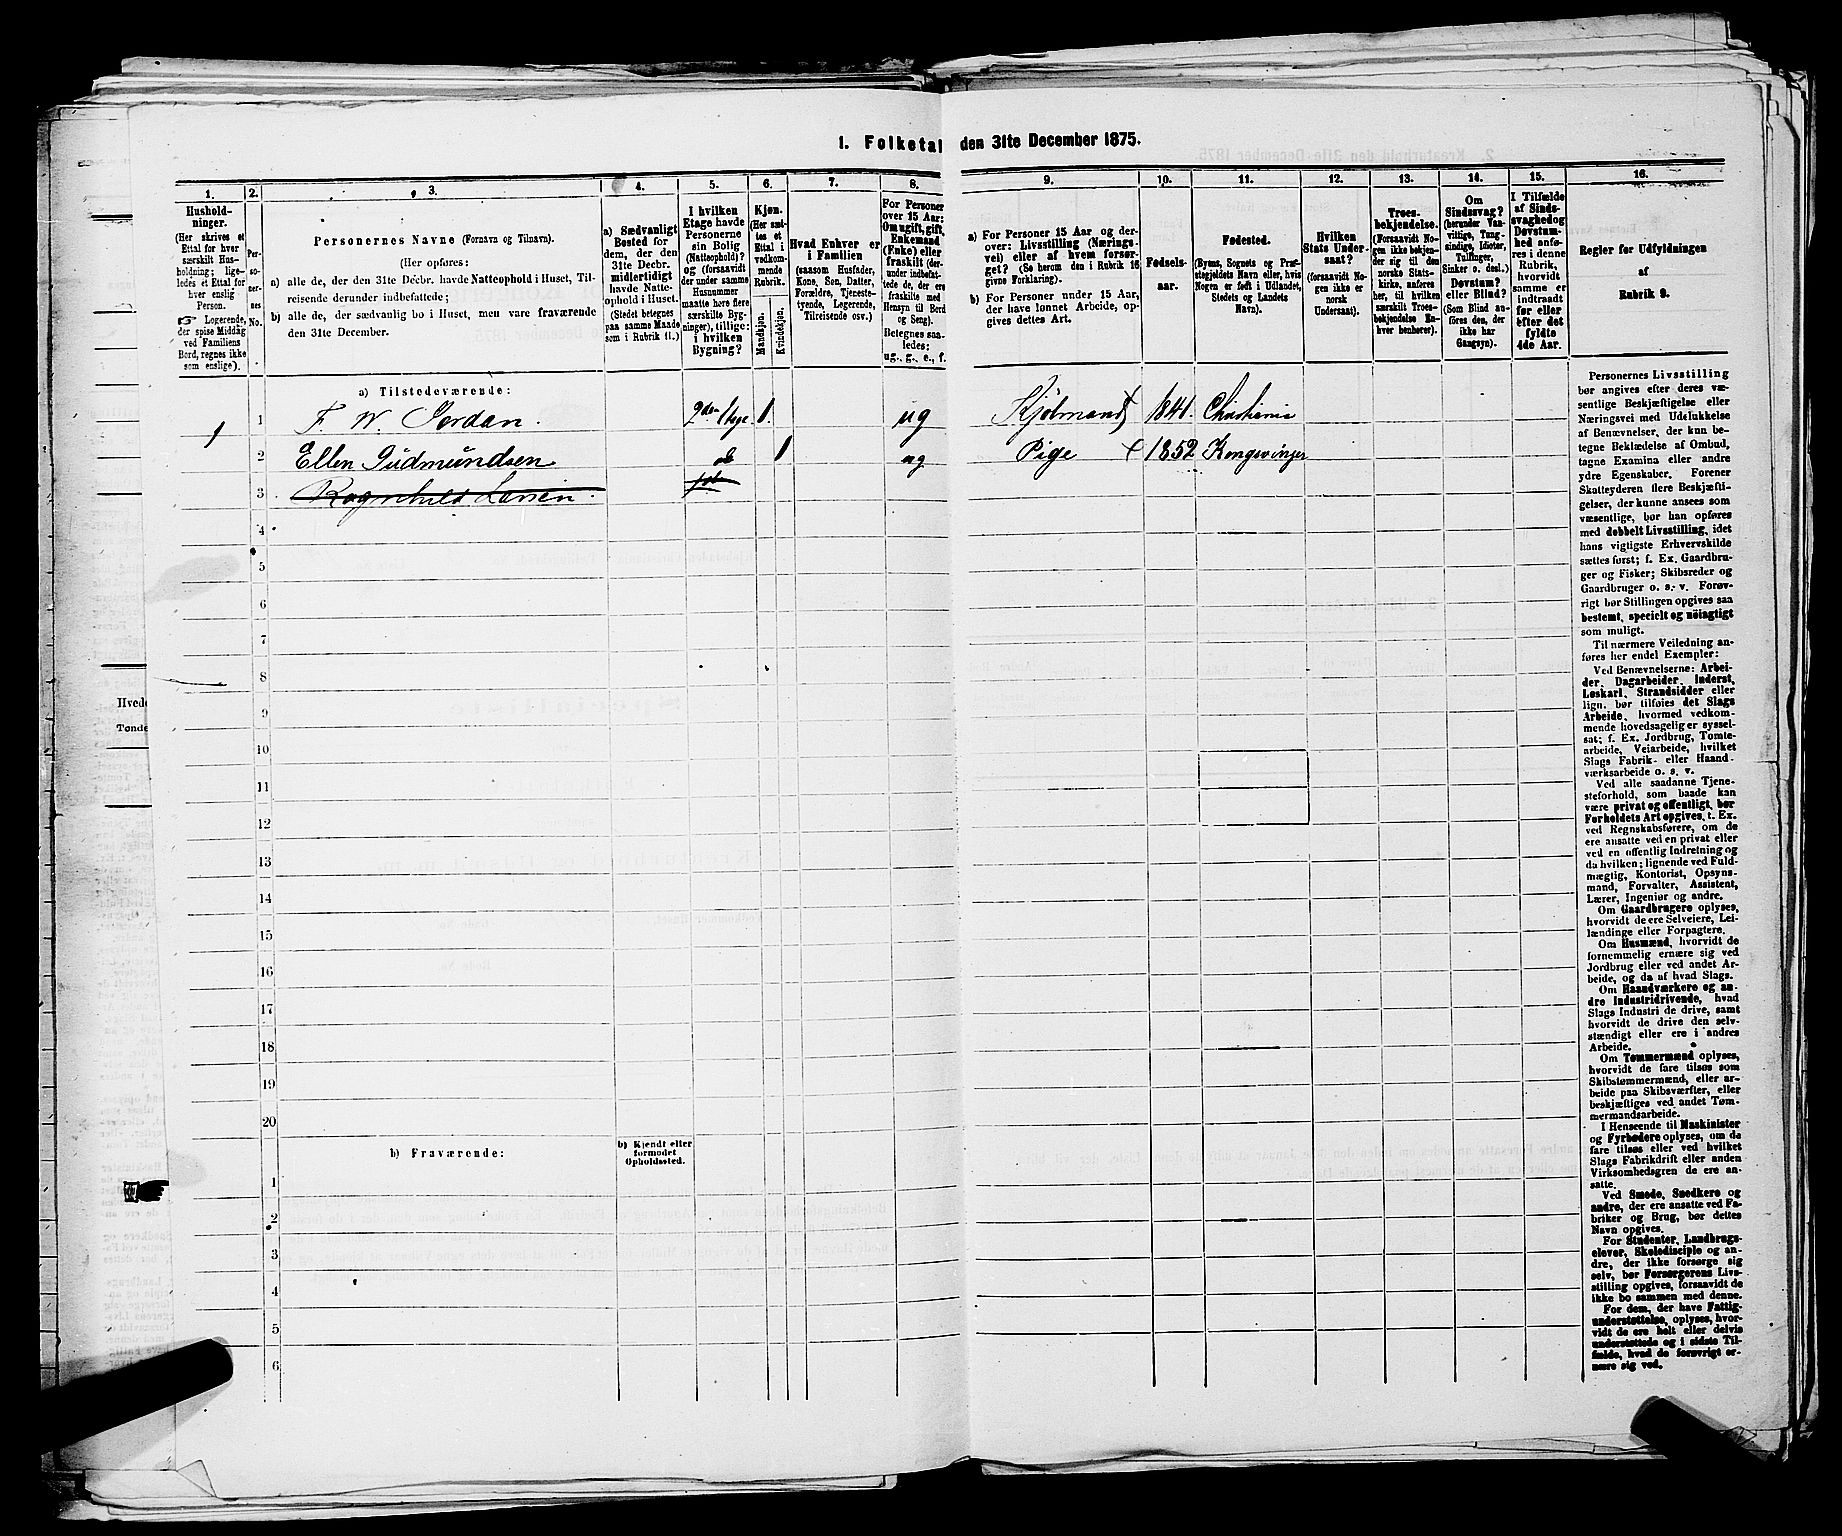 1. Folketal den 31te December 1875.
1. 2. 3. 4. 5. 6. 7. 8. 9. 10. 11. 12. 13. 14. 15. 16.
Hushold-
ninger.
(Her skrives et
Ettal for hver
særskilt Hus-
holdning; lige-
ledes et Ettal
for hver enslig
Person.
☞ Logerende,
der spise Middag
ved Familiens
Bord, regnes ikke
som enslige).
Per-
so-
ner-
nes
No.
Personernes Navne (Fornavn og Tilnavn).
(Her opføres:
a) alle de, der den 31te Decbr. havde Natteophold i Huset, Til-
reisende derunder indbefattede;
b) alle de, der sædvanlig bo i Huset, men vare fraværende
den 31te December.
a) Sædvanligt
Bosted for
dem, der den
31te Decbr.
midlertidigt
havde Natte-
ophold i Huset.
(Stedet betegnes
paa samme Maade
som i Rubrik 11.)
I hvilken
Etage havde
Personerne
sin Bolig
(Natteophold)?
og (forsaavidt
der under samme
Husnummer
maatte høre flere
særskilte Byg-
ninger), tillige:
i hvilken
Bygning?
Kjøn.
(Her sæt-
tes et
Ettal i
vedkom-
mende
Rubrik.
Mandkjøn.
Kvindekjøn.
Hvad Enhver er
i Familien
(saasom Husfader,
Kone, Søn, Datter,
Forældre, Tjeneste-
tyende, Logerende,
Tilreisende osv.)
For Personer
over 15 Aar:
Om ugift, gift,
Enkemand
(Enke) eller
fraskilt (der-
under indbefat-
tede de, der ere
fraskilte med
Hensyn til Bord
og Seng).
Betegnes saa-
ledes:
ug., g., e., f.
a) For Personer 15 Aar og der-
over: Livsstilling (Nærings-
vei) eller af hvem forsør-
get? (Se herom den i Rubrik 16
givne Forklaring).
b) For Personer under 15 Aar,
der have lønnet Arbeide, op-
gives dettes Art.
Fødsels-
aar.
Fødested.
(Byens, Sognets og Præ-
stegjeldets Navn eller, hvis
Nogen er født i Udlandet,
Stedets og Landets
Navn).
Hvilken
Stats Under-
saat?
(forsaavidt No-
gen ikke er
norsk
Undersaat).
Troes-
bekjendelse.
(Forsaavidt No-
gen ikke bekjen-
der sig til den
norske Stats-
kirke, anføres
her, til hvilken
særskilt Troes-
bekjendelse En-
hver henhører).
Om
Sindssvag?
(herunder Van-
vittige, Tung-
sindige, Idioter,
Tullinger,
Sinker o. desl.)
Døvstum?
eller Blind?
(Som Blind an-
føres den, der
ikke har
Gangsyn).
I Tilfælde
af Sinds-
svaghed og
Døvstum-
hed anfø-
res i denne
Rubrik,
hvorvidt
samme er
indtraadt
før eller
efter det
fyldte
4de Aar.
Regler for Udfyldningen
af
Rubrik 9.
a) Tilstedeværende:
1 1 F. W. Jordan. 2den Etage 1. ug Kjøbmand 1841. Christiania
2 Ellen Gudmundsen do 1 ug Pige 1852 Kongsvinger
3 Ragnhild Larsen.
4
5
6
7
8
9
10
11
12
13
14
15
16
17
18
19
20
b) Fraværende:
b) Kjendt eller
formodet
Opholdssted.
1
2
3
4
5
6
Personernes Livsstilling
bør angives efter deres væ-
sentlige Beskjæftigelse eller
Næringsvei med Udelukkelse
af Benævnelser, der kun be-
tegne Beklædelse af Ombud,
tagne Examina eller andre
ydre Egenskaber. Forener
Skatteyderen flere Beskjæfti-
gelser, der kunne ansees som
væsentlige, bør han opføres
med dobbelt Livsstilling, idet
hans vigtigste Erhvervskilde
sættes først; f. Ex. Gaardbru-
ger og Fisker; Skibsreder og
Gaardbruger o. s. v. Forøv-
rigt bør Stillingen opgives saa
bestemt, specielt og nøiagtigt
som muligt.
Til nærmere Veiledning an-
føres her endel Exempler:
Ved Benævnelserne: Arbei-
der, Dagarbeider, Inderst,
Løskarl, Strandsidder eller
lign. bør tilføies det Slags
Arbeide, hvormed vedkom-
mende hovedsagelig er syssel-
sat; f. Ex. Jordbrug, Tomte-
arbeide, Veiarbeide, hvilket
Slags Fabrik- eller Haand-
værksarbeide o. s. v.
Ved alle saadanne Tjene-
steforhold, som baade kan
være privat og offentligt, bør
Forholdets Art opgives, t. Ex.
ved Regnskabsførere, om de
ere ansatte ved en privat eller
ved en offentlig Indretning og
da hvilken; lignende ved Fuld-
mægtig, Kontorist, Opsyns-
mand, Forvalter, Assistent,
Lærer, Ingeniør og andre.
Om Gaardbrugere oplyses,
hvorvidt de ere Selveiere, Lei-
lændinge eller Forpagtere.
Om Husmænd, hvorvidt de
fornemmelig ernære sig ved
Jordbrug eller ved andet Ar-
beide, og da af hvad Slags.
Om Haandværkere og an-
dre Industridrivende, hvad
Slags Industri de drive, samt
hvorvidt de drive den selv-
stændigt eller ere i andres
Arbeide.
Om Tømmermænd oplyses,
hvorvidt de fare tilsøs som
Skibstømmermænd, eller ar-
beide paa Skibsværfter, eller
beskjæftiges ved andet Tøm-
mermandsarbeide.
I Henseende til Maskinister
og Fyrbødere oplyses, om de
fare tilsøs eller ved hvilket
Slags Fabrikdrift eller anden
Virksomhedsgren de ere an-
satte.
Ved Smede, Snedkere og
andre, der ere ansatte ved Fa-
briker og Brug, bør dettes
Navn opgives.
For Studenter, Landbrugs-
elever, Skoledisciple og an-
dre, der ikke forsørge sig
selv, bør Forsørgerens Livs-
stilling opgives, forsaavidt de
ikke bo sammen med denne.
For dem, der have Fattig-
understøttelse, oplyses, hvor-
vidt de ere helt eller delvis
understøttede og i sidste Til-
fælde, hvad de forøvrigt er-
nære sig ved.
Hvede
Tønde